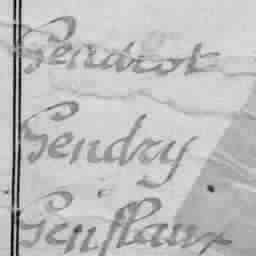 Gendrot
Gendry
Genflaux